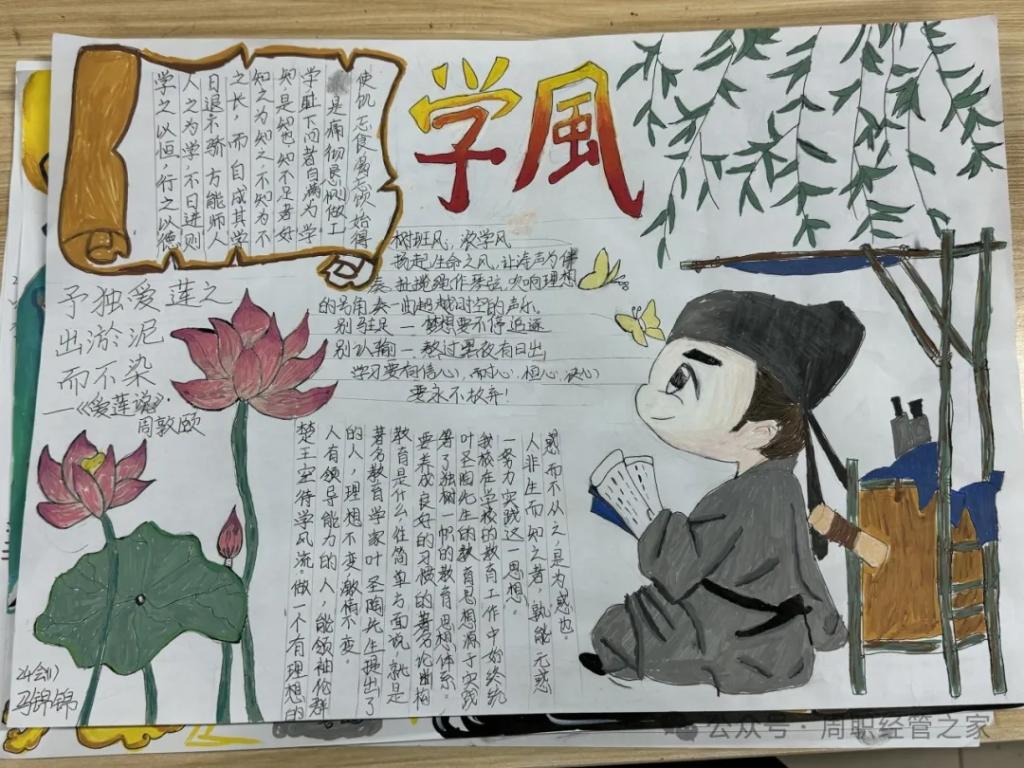 学風
使饥忘食渴忘饮始得
是痛彻 做工
学耻下问者自满为学
知是知也知不足者好
知之为知之不知为不
之长，而自成其学
日退不骄方能师人
人之为学不日进则
学之以恒行之以德
树班风，浓学风
扬起生命之风，让涛声为伴
奏，扯缆绳作琴弦，吹响理想
的号角奏一曲超越时空的声乐。
别驻足一梦想要不停追逐
别认输一熬过黑夜有日出
学习要有信心，耐心，恒心，决心
要永不放弃！
予独爱莲之
出淤泥
而不染
—《爱莲说》.
周敦颐
惑而不从之，是为惑也
人非生而知之者，孰能无惑
一努力实践这一思想。
我校在学校的教育工作中始终
叶圣陶先生的教育思想源于实践
等了独树一帜的教育思想体系。
要养成良好的习惯的著名论断构
教育是什么，往简单方面说，就是
著名教育学家叶圣陶先生提出了
的人，理想不变，激情不变。
人有领导能力的人，能领袖伦群
楚王宝待学风流。做一个有理想的
24会(1)
马锦锦
公众号·周职经管之家